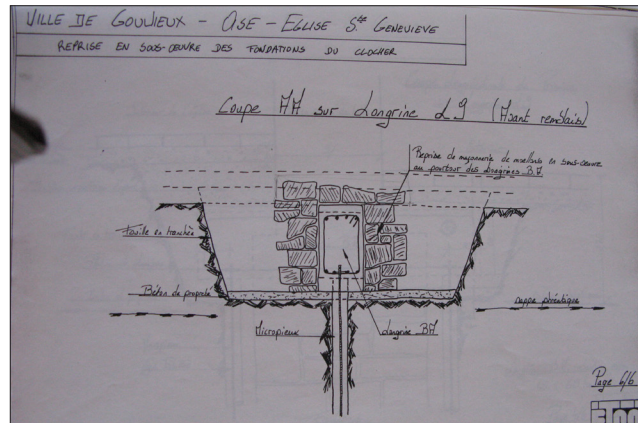 VILLE DE GOUVIEUX - OISE - EGLISE Ste GENEVIEVE
REPRISE EN SOUS-ŒUVRE DES FONDATIONS DU CLOCHER
Coupe AA sur Longrine L9 (Avant remblais)
Reprise de maçonnerie de moellons en sous-œuvre
au pourtour des longrines BA
Fouille en tranchée
Béton de propreté
nappe phréatique
Micropieux
Longrine BA
Page 6/6